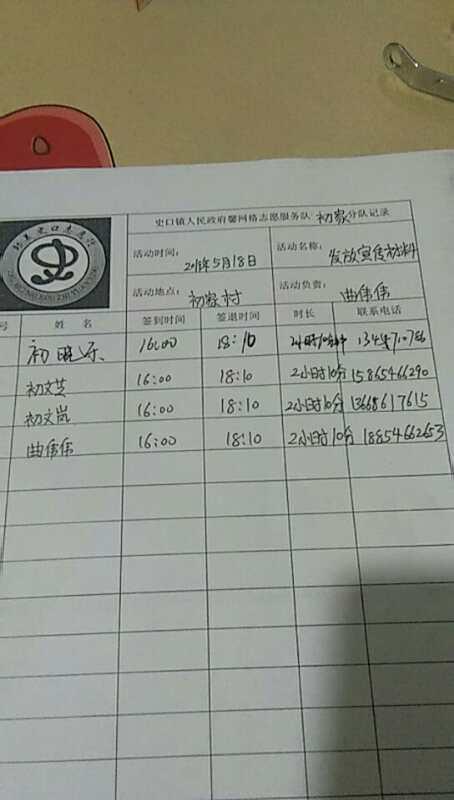 史口镇人民政府馨网络志愿服务队 初家 分队记录
活动时间: 2018年5月18日 活动名称: 发放宣传材料
活动地点: 初家村 活动负责: 曲伟伟
号 姓 名 签到时间 签退时间 时长 联系电话
初晓乐 16:00 18:10 2小时10分
初文芝 16:00 18:10 2小时10分 15865466290
初文岚 16:00 18:10 2小时10分 13668617615
曲伟伟 16:00 18:10 2小时10分 18854662653